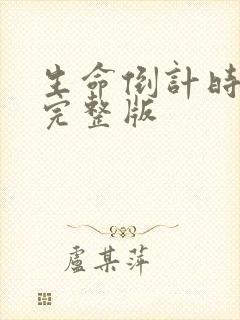 生命倒計時
完整版
盧某萍